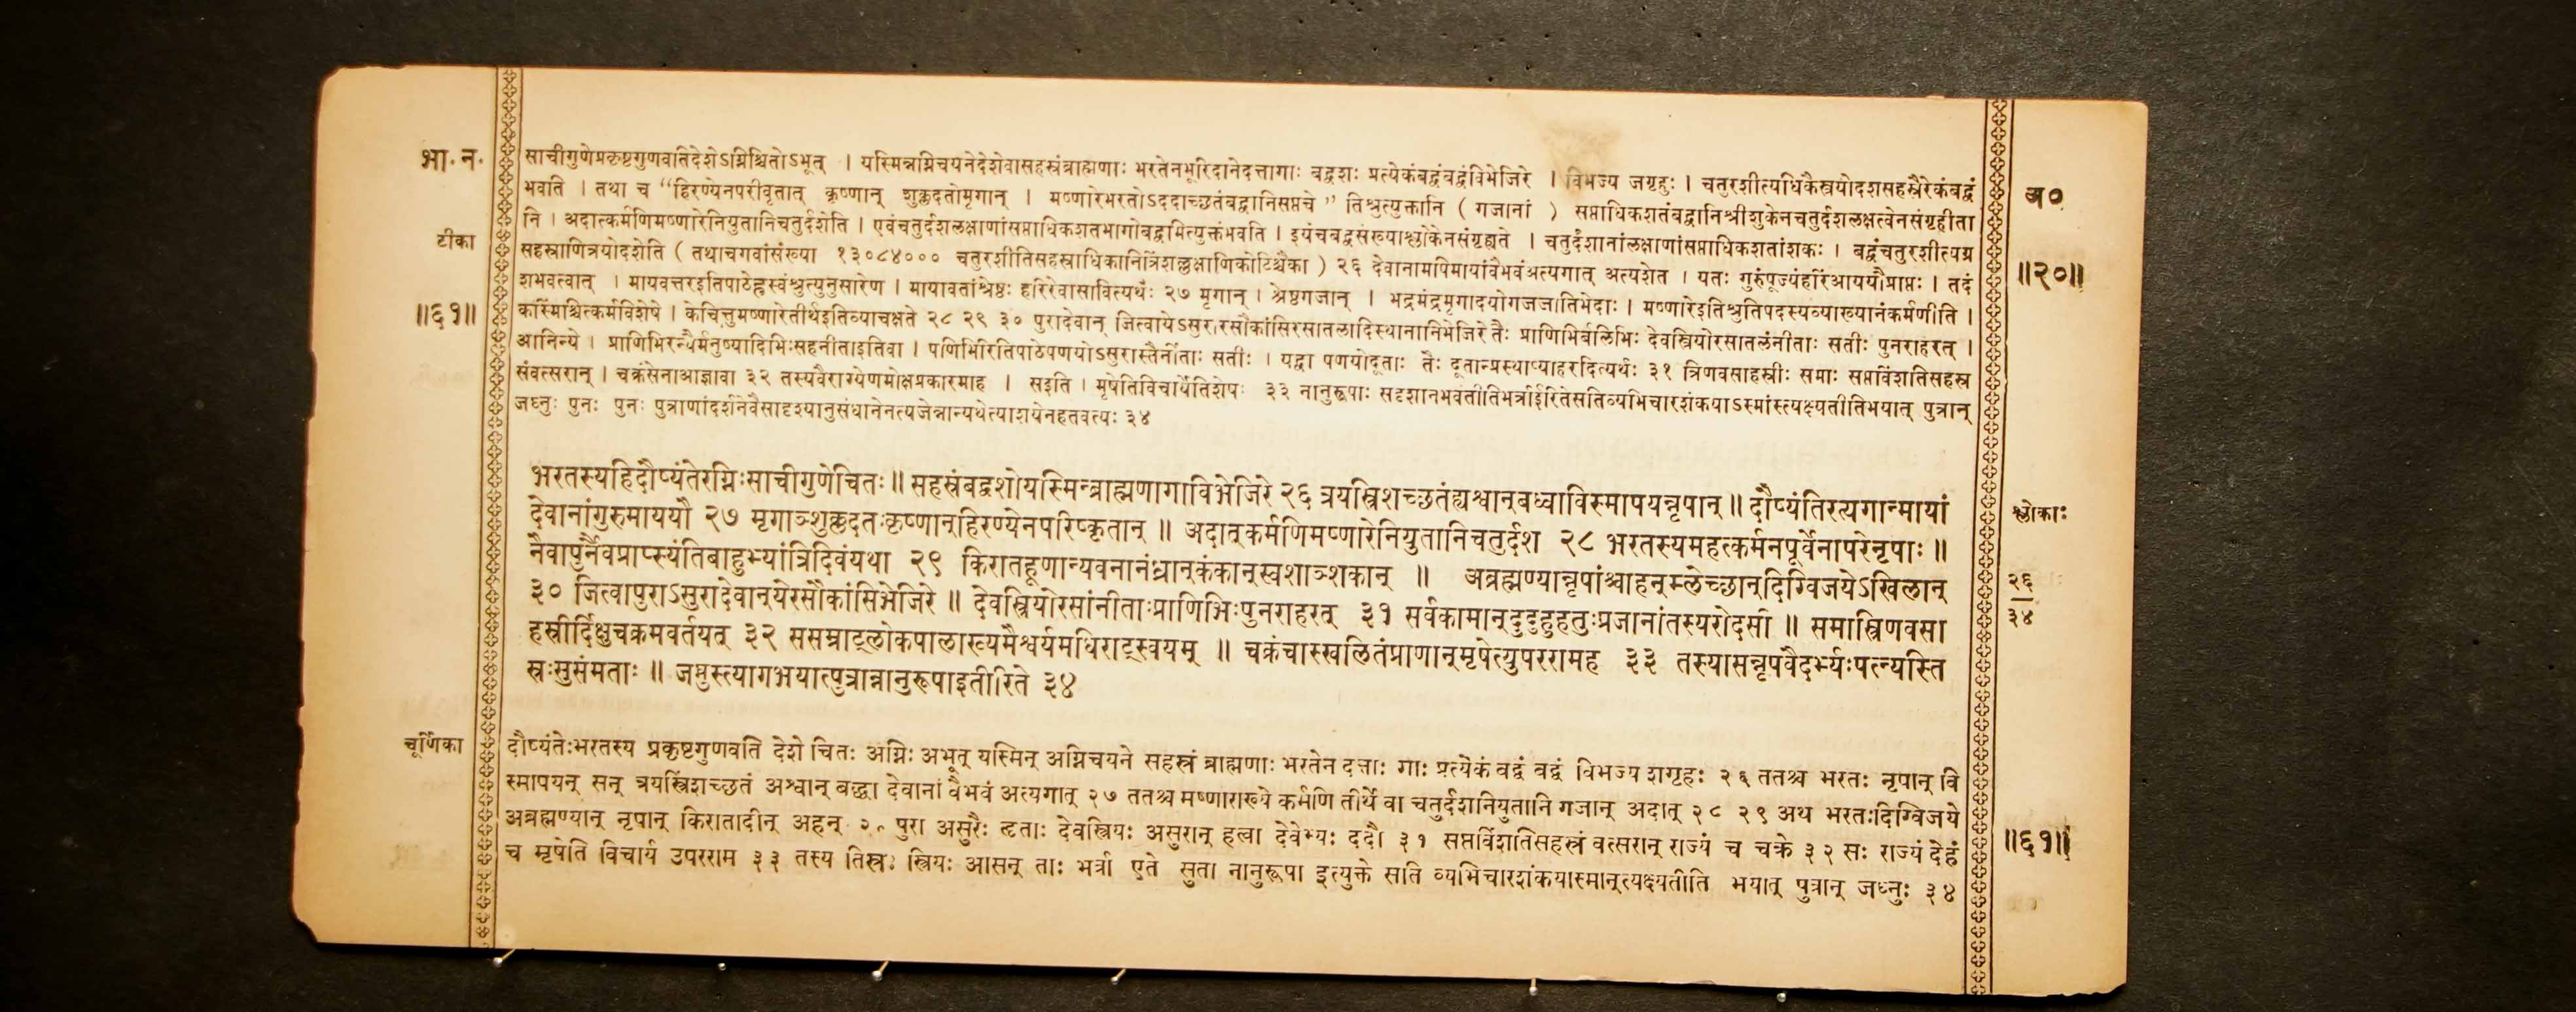 भा. न.
साचीगुणेप्रकृष्टगुणवतिदेशेऽग्निश्चितोऽभूत् । यस्मिन्नग्निचयनेदेशेवासहस्रंब्राह्मणाः भरतेनभूरिदानेदत्तागाः बद्वशः प्रत्येकंबद्वंबद्वंविभेजिरे । विभज्य जगृहुः । चतुरशीत्यधिकैस्त्रयोदशसहस्रैरेकंबद्वं
भवति । तथा च “हिरण्येनपरीवृतात् कृष्णान् शुक्लदतोमृगान् । मष्णारेभरतोऽददाच्छतंबद्वानिसप्तचे ” तिश्रुत्युक्तानि ( गजानां ) सप्ताधिकशतंबद्वानिश्रीशुकेनचतुर्दशलक्षत्वेनसंगृहीता
नि । अदात्कर्मणिमष्णारेनियुतानिचतुर्दशेति । एवंचतुर्दशलक्षाणांसप्ताधिकशतभागोबद्वमित्युक्तंभवति । इयंचबद्वसंख्याश्लोकेनसंगृह्यते । चतुर्दशानांलक्षाणांसप्ताधिकशतांशकः । बद्वंचतुरशीत्यग्र
सहस्राणित्रयोदशेति ( तथाचगवांसंख्या १३०८४००० चतुरशीतिसहस्राधिकानित्रिंशल्लक्षाणिकोटिश्चैका ) २६ देवानामपिमायांवैभवंअत्यगात् अत्यशेत । यतः गुरुंपूज्यंहरिंआययौप्राप्तः । तदं
शभवत्वात् । मायवत्तरइतिपाठेह्रस्वंश्रुत्युनुसारेण । मायावतांश्रेष्ठः हरिरेवासावित्यर्थः २७ मृगान् । श्रेष्ठगजान् । भद्रमंद्रमृगादयोगजजातिभेदाः । मष्णारेइतिश्रुतिपदस्यव्याख्यानंकर्मणीति ।
कस्मिंश्चित्कर्मविशेषे । केचित्तुमष्णारेतीर्थेइतिव्याचक्षते २८ २९ ३० पुरादेवान् जित्वायेऽसुरारसौकांसिरसातलादिस्थानानिभेजिरे तैः प्राणिभिर्बलिभिः देवस्त्रियोरसातलंनीताः सतीः पुनराहरत् ।
आनिन्ये । प्राणिभिरन्यैर्मनुष्यादिभिःसहनीताइतिवा । पणिभिरितिपाठेपणयोऽसुरास्तैर्नीताः सतीः । यद्वा पणयोदूताः तैः दूतान्प्रस्थाप्याहरदित्यर्थः ३१ त्रिणवसाहस्रीः समाः सप्तविंशतिसहस्र
संवत्सरान् । चक्रंसेनाआज्ञावा ३२ तस्यवैराग्येणमोक्षप्रकारमाह । सइति । मृषेतिविचार्येतिशेषः ३३ नानुरूपाः सदृशानभवंतीतिभर्त्राईरितेसतिव्यभिचारशंकयाऽस्मांस्त्यक्ष्यतीतिभयात् पुत्रान्
जघ्नुः पुनः पुनः पुत्राणांदर्शनेवैसादृश्यानुसंधानेनत्यजेन्नान्यथेत्याशयेनहतवत्यः ३४
टीका
॥६१॥
अ०
॥२०॥
भरतस्यहिदौष्यंतेरग्निःसाचीगुणेचितः ॥ सहस्रंबद्वशोयस्मिन्ब्राह्मणागाविभेजिरे २६ त्रयस्त्रिंशच्छतंह्यश्वान्बध्वाविस्मापयन्नृपान् ॥ दौष्यंतिरत्यगान्मायां
देवानांगुरुमाययौ २७ मृगाञ्शुक्लदतःकृष्णान्हिरण्येनपरिष्कृतान् ॥ अदात्कर्मणिमष्णारेनियुतानिचतुर्दश २८ भरतस्यमहत्कर्मनपूर्वेनापरेनृपाः ॥
नैवापुर्नैवप्राप्स्यंतिबाहुभ्यांत्रिदिवंयथा २९ किरातहूणान्यवनानंध्रान्कंकान्खशाञ्शकान् ॥ अब्रह्मण्यान्नृपांश्चाहन्म्लेच्छान्दिग्विजयेऽखिलान्
३० जित्वापुराऽसुरादेवान्येरसौकांसिभेजिरे ॥ देवस्त्रियोरसांनीताःप्राणिभिःपुनराहरत् ३१ सर्वकामान्दुदुहुहतुःप्रजानांतस्यरोदसी ॥ समास्त्रिणवसा
हस्रीर्दिक्षुचक्रमवर्तयत् ३२ ससम्राट्लोकपालाख्यमैश्वर्यमधिराट्स्वयम् ॥ चक्रंचास्खलितंप्राणान्मृषेत्युपररामह ३३ तस्यासन्नृपवैदर्भ्यःपत्न्यस्ति
स्रःसुसंमताः ॥ जघ्नुस्त्यागभयात्पुत्रान्नानुरूपाइतीरिते ३४
श्लोकाः
२६
३४
चूर्णिका
दौष्यंतेःभरतस्य प्रकृष्टगुणवति देशे चितः अग्निः अभूत् यस्मिन् अग्निचयने सहस्रं ब्राह्मणाः भरतेन दत्ताः गाः प्रत्येकं बद्वं बद्वं विभज्य शगृहः २६ ततश्च भरतः नृपान् वि
स्मापयन् सन् त्रयस्त्रिंशच्छतं अश्वान् बद्धा देवानां वैभवं अत्यगात् २७ ततश्च मष्णाराख्ये कर्मणि तीर्थे वा चतुर्दशनियुतानि गजान् अदात् २८ २९ अथ भरतःदिग्विजये
अब्रह्मण्यान् नृपान् किरातादीन् अहन् ३० पुरा असुरैः हृताः देवस्त्रियः असुरान् हत्वा देवेभ्यः ददौ ३१ सप्तविंशतिसहस्रं वत्सरान् राज्यं च चक्रे ३२ सः राज्यं देहं
च मृषेति विचार्य उपरराम ३३ तस्य तिस्रः स्त्रियः आसन् ताः भर्त्रा एते सुता नानुरूपा इत्युक्ते सति व्यभिचारशंकयास्मान्त्यक्ष्यतीति भयात् पुत्रान् जघ्नुः ३४
॥६१॥